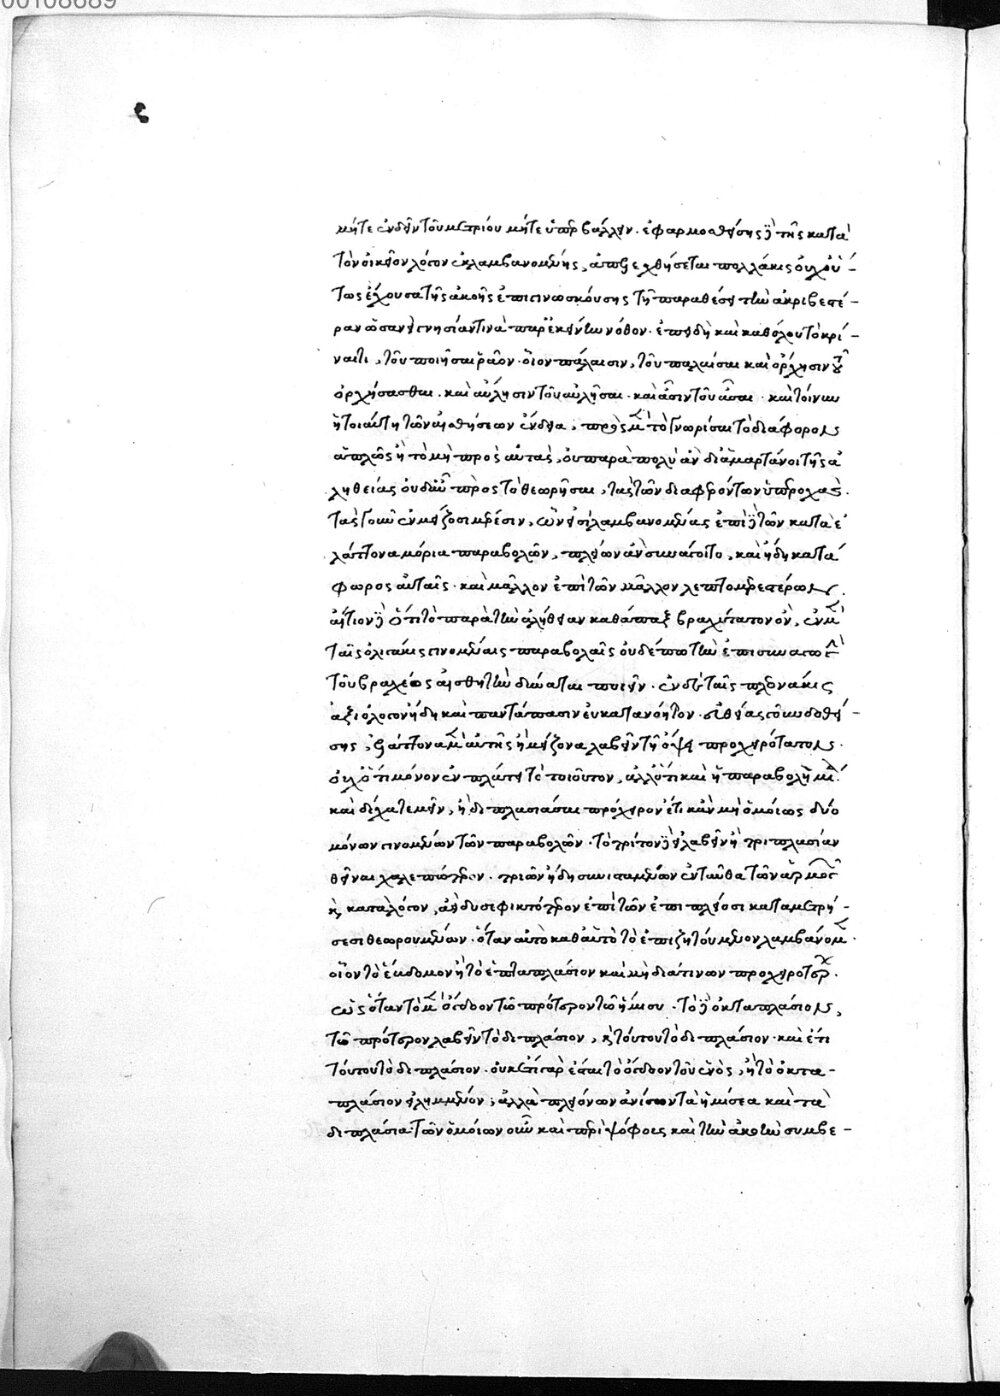 00108689
μήτε ἐνδεῖν τοῦ μετρίου μήτε ὑπερβάλλειν. ἐφαρμοσθείσης δὲ τῆς κατὰ
τὸν οἰκεῖον λόγον ἐκλαμβανομένης, ἀπελεγχθήσεται πολλάκις οὐχ οὕ-
τως ἔχουσα τῆς ἀκοῆς ἐπιγινωσκούσης τῇ παραθέσει τὴν ἀκριβεστέ-
ραν ὡσανεὶ γνησίαν τινὰ παρ' ἐκείνην νόθον. ἐπειδὴ καὶ καθόλου τὸ κρί-
ναί τι, τοῦ ποιῆσαι ῥᾷον. οἷον πάλαισιν, τοῦ παλαῖσαι καὶ ὄρχησιν τοῦ
ὀρχήσασθαι. καὶ αὔλησιν τοῦ αὐλῆσαι. καὶ ᾆσιν τοῦ ᾆσαι. καὶ τοίνυν
ἡ τοιαύτη τῶν αἰσθήσεων ἔνδεια, πρὸς μὲν τὸ γνωρίσαι τὸ διάφορον
ἁπλῶς ἢ τὸ μὴ πρὸς αὐτάς, οὐ παρὰ πολὺ ἂν διαμαρτάνοι τῆς ἀ
ληθείας οὐδ' αὖ πρὸς τὸ θεωρῆσαι, τὰς τῶν διαφερόντων ὑπεροχάς.
τὰς γοῦν ἐν μείζοσι μέρεσιν, ὧν εἰσὶ λαμβανομένας ἐπὶ δὲ τῶν κατὰ ἐ
λάττονα μόρια παραβολῶν, πλεῖον ἂν συνάγοιτο, καὶ ἤδη κατά
φωρος αὐταῖς. καὶ μᾶλλον ἐπὶ τῶν μᾶλλον λεπτομερεστέρων.
αἴτιον δὲ ὅτι τὸ παρὰ τὴν ἀλήθειαν καθάπαξ βραχύτατον ὄν, ἐν μὲν
ταῖς ὀλιγάκις γινομέναις παραβολαῖς οὐδέπω τὴν ἐπισυναγωγὴν
τοῦ βραχέος αἰσθητὴν δύναται ποιεῖν. ἐν δὲ ταῖς πλεονάκις
ἀξιόλογον ἤδη καὶ παντάπασιν εὐκατανόητον. εὐθείας γοῦν δοθεί-
σης, ἐλάττονα μὲν αὐτῆς ἢ μείζονα λαβεῖν τῇ ὄψει προχειρότατον.
οὐχ ὅτι μόνον ἐν πλάτει τὸ τοιοῦτον, ἀλλ' ὅτι καὶ ἡ παραβολὴ μία.
καὶ δίχα τεμεῖν, ἢ διπλασιάσαι πρόχειρον ἔτι κἂν μὴ ὁμοίως δύο
μόνων γινομένων τῶν παραβολῶν. τὸ τρίτον δὲ λαβεῖν ἢ τριπλασίαν
θεῖναι χαλεπώτερον. τριῶν ἤδη συνισταμένων ἐνταῦθα τῶν ἁρμογῶν
καὶ κατὰ λόγον, ἀεὶ δυσεφικτότερον ἐπὶ τῶν ἐπὶ πλείοσι καταμετρή-
σεσι θεωρουμένων. ὅταν αὐτὸ καθ' αὑτὸ τὸ ἐπιζητούμενον λαμβάνωμεν.
οἷον τὸ ἕβδομον ἢ τὸ ἑπταπλάσιον καὶ μὴ διά τινων προχειροτέρων.
ὡς ὅταν τὸ μὲν ὄγδοον τῷ πρότερον τὸ ἥμισυ. τὸ δὲ ὀκταπλάσιον,
τῷ πρότερον λαβεῖν τὸ διπλάσιον, καὶ τούτου τὸ διπλάσιον. καὶ ἔτι
τούτου τὸ διπλάσιον. οὐκέτι γὰρ ἔσται τὸ ὄγδοον τοῦ ἑνός, ἢ τὸ ὀκτα-
πλάσιον εἰλημμένον, ἀλλὰ πλειόνων ἀνίσων τὰ ἡμίσεα καὶ τὰ
διπλάσια. τῶν ὁμοίων οὖν καὶ περὶ ψόφους καὶ τὴν ἀκοὴν συμβε-